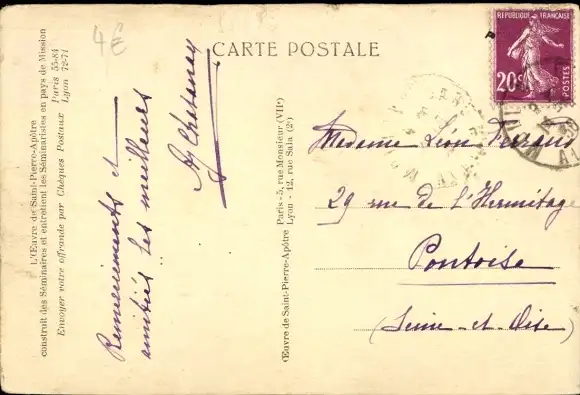 4€
CARTE POSTALE
REPUBLIQUE FRANÇAISE
20c
POSTES
L'Œuvre de Saint-Pierre-Apôtre
construit des Séminaires et entretient les Séminaristes en pays de Mission
Envoyer votre offrande par Chèques Postaux Paris 55-84
Lyon 72-71
Remerciements et
amitiés les meilleures
Œuvre de Saint-Pierre-Apôtre
Paris - 5, rue Monsieur (VIIe)
Lyon - 12, rue Sala (2e)
Madame Léon
29 rue de l'Hermitage
Pontoise
(Seine-et-Oise)